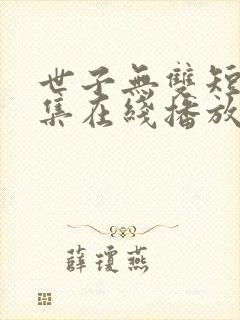 世子無雙短
集在綫播放
薛瓊燕